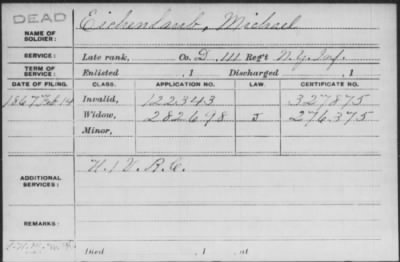 DEAD
NAME OF SOLDIER: Eichenlaub, Michael
SERVICE: Late rank, Co. D, 111 Reg't N.Y. Inf.
TERM OF SERVICE: Enlisted , 1 Discharged , 1
DATE OF FILING. CLASS. APPLICATION NO. LAW. CERTIFICATE NO.
1867 Feb 14 Invalid, 122343 327875
Widow, 282698 J 276375
Minor,
ADDITIONAL SERVICES: V.R.C.
REMARKS:
Died , 1 , at